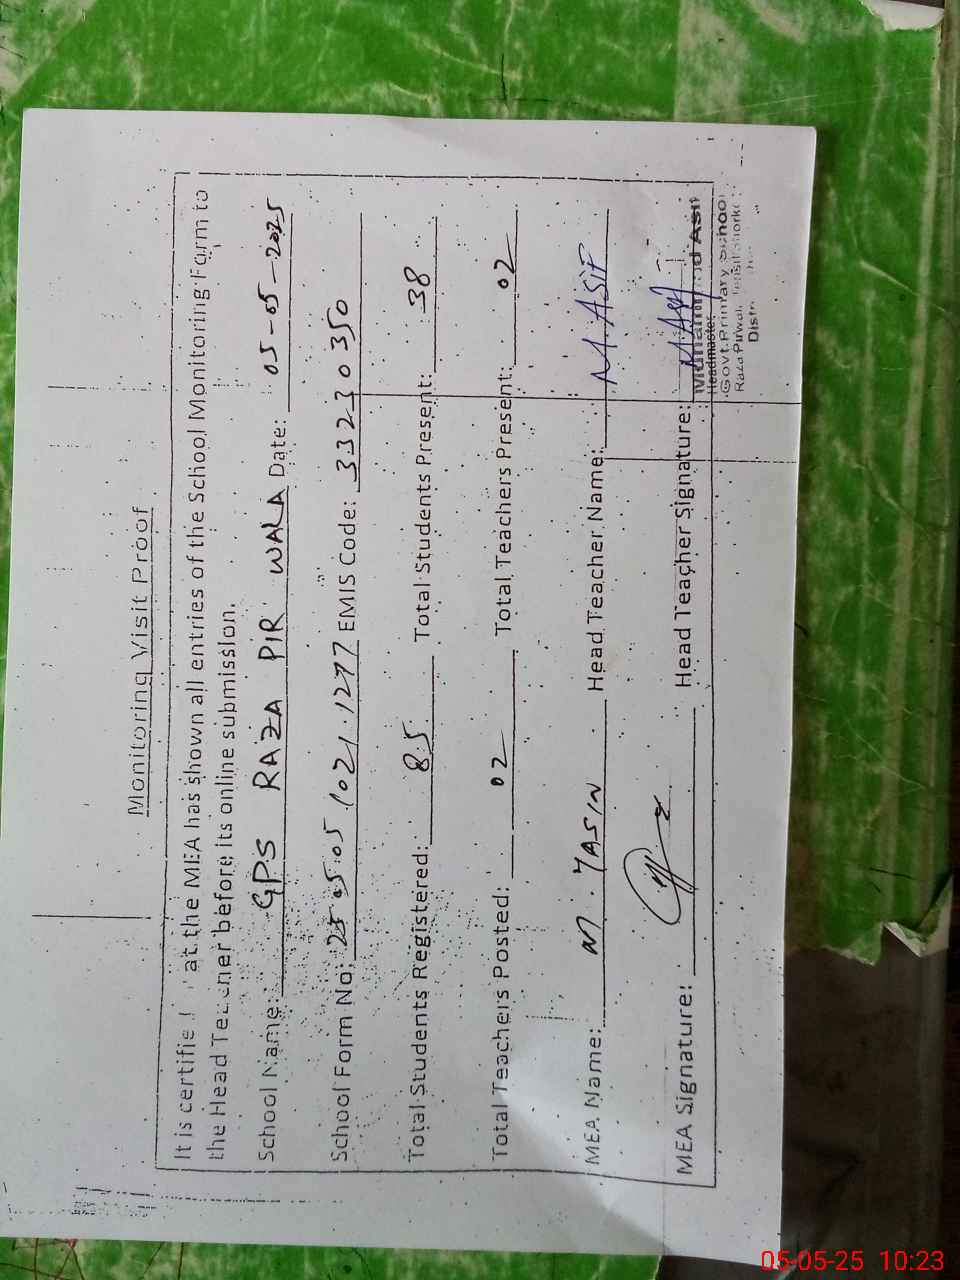 Monitoring Visit Proof
It is certifie at the MEA has shown all entries of the School Monitoring Form to
the Head Teacher before its online submission.
School Name: GPS RAZA PIR WALA Date: 05-05-2025
School Form No: 25.05.05 1021.1277 EMIS Code: 33230350
Total Students Registered: 85 Total Students Present: 38
Total Teachers Posted: 02 Total Teachers Present: 02
MEA Name: M. YASIN Head Teacher Name: M. ASIF
MEA Signature: Head Teacher Signature: M ASif
Muhammad Asif
Headmaster
Govt. Primary School
Raza Pirwala
Distt
05-05-25 10:23